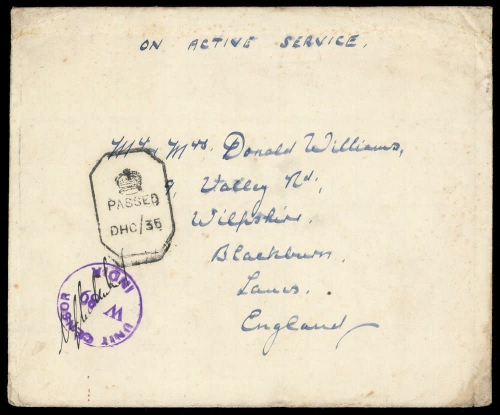 ON ACTIVE SERVICE.
Mr & Mrs. Donald Williams,
9, Valley Rd.,
Wilpshire.
Blackburn.
Lancs.
England
PASSED
DHC/35
UNIT CENSOR
W
INDIA